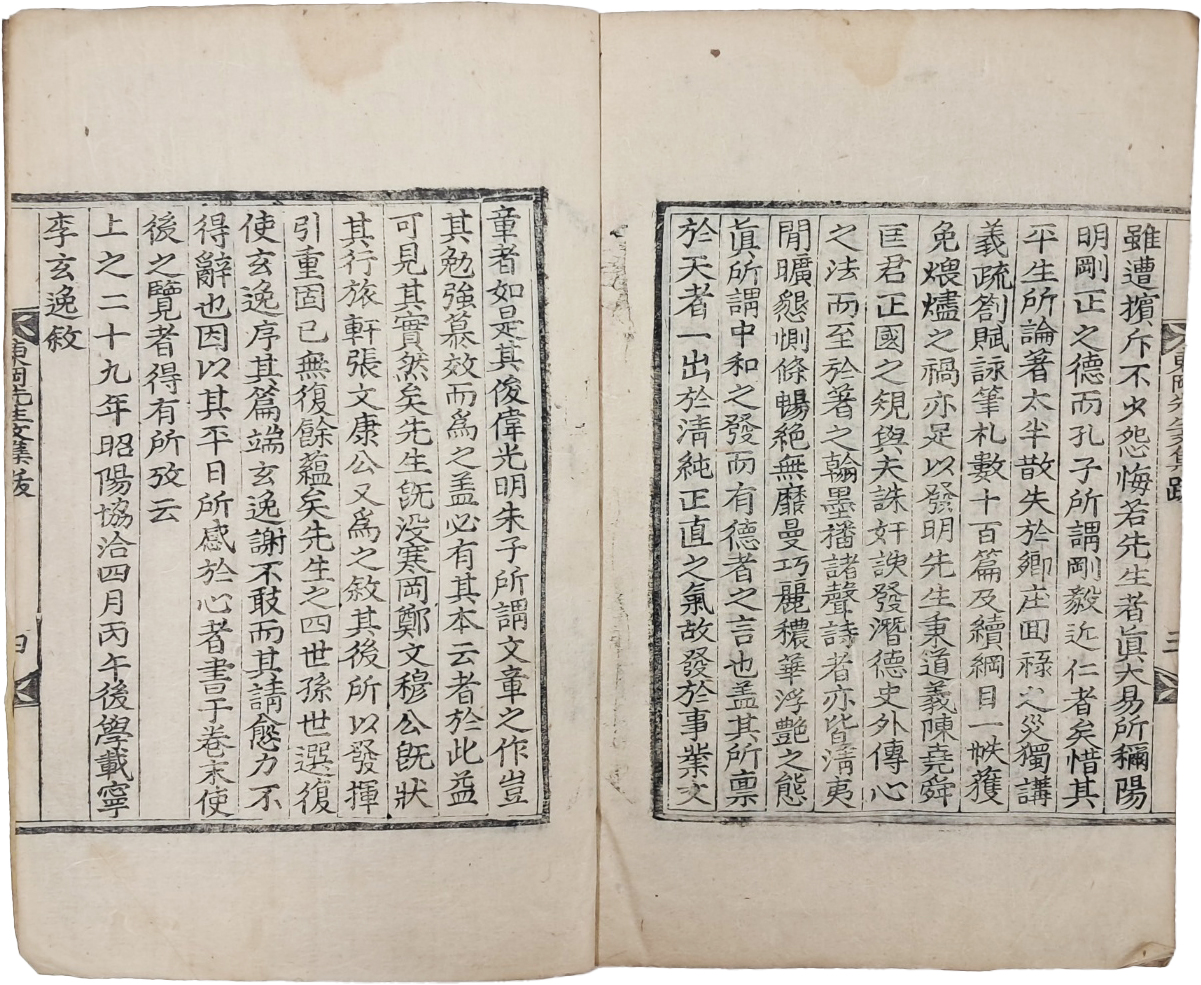 雖遭擯斥不少怨悔若先生者眞大易所稱陽
明剛正之德而孔子所謂剛毅近仁者矣惜其
平生所論著太半散失於鄕庄囬祿之災獨講
義疏劄賦詠筆札數十百篇及續綱目一帙獲
免煨燼之禍亦足以發明先生秉道義陳堯舜
匡君正國之䂓與夫誅奸諛發潛德史外傳心
之法而至於著之翰墨播諸聲詩者亦皆淸夷
閒曠懇惻條暢絶無靡曼巧麗穠華浮艶之態
眞所謂中和之發而有德者之言也盖其所禀
於天者一出於淸純正直之氣故發於事業文
三
童者如是其俊偉光明朱子所謂文章之作豈
其勉強慕效而爲之盖必有其本云者於此益
可見其實然矣先生旣没寒岡鄭文穆公旣狀
其行旅軒張文康公又爲之敘其後所以發揮
引重固已無復餘蘊矣先生之四世孫世選復
使玄逸序其篇端玄逸謝不敢而其請愈力不
得辭也因以其平日所感於心者書于卷末使
後之覽者得有所攷云
上之二十九年昭陽協洽四月丙午後學載寧
李玄逸敘
東岡先生文集跋
四